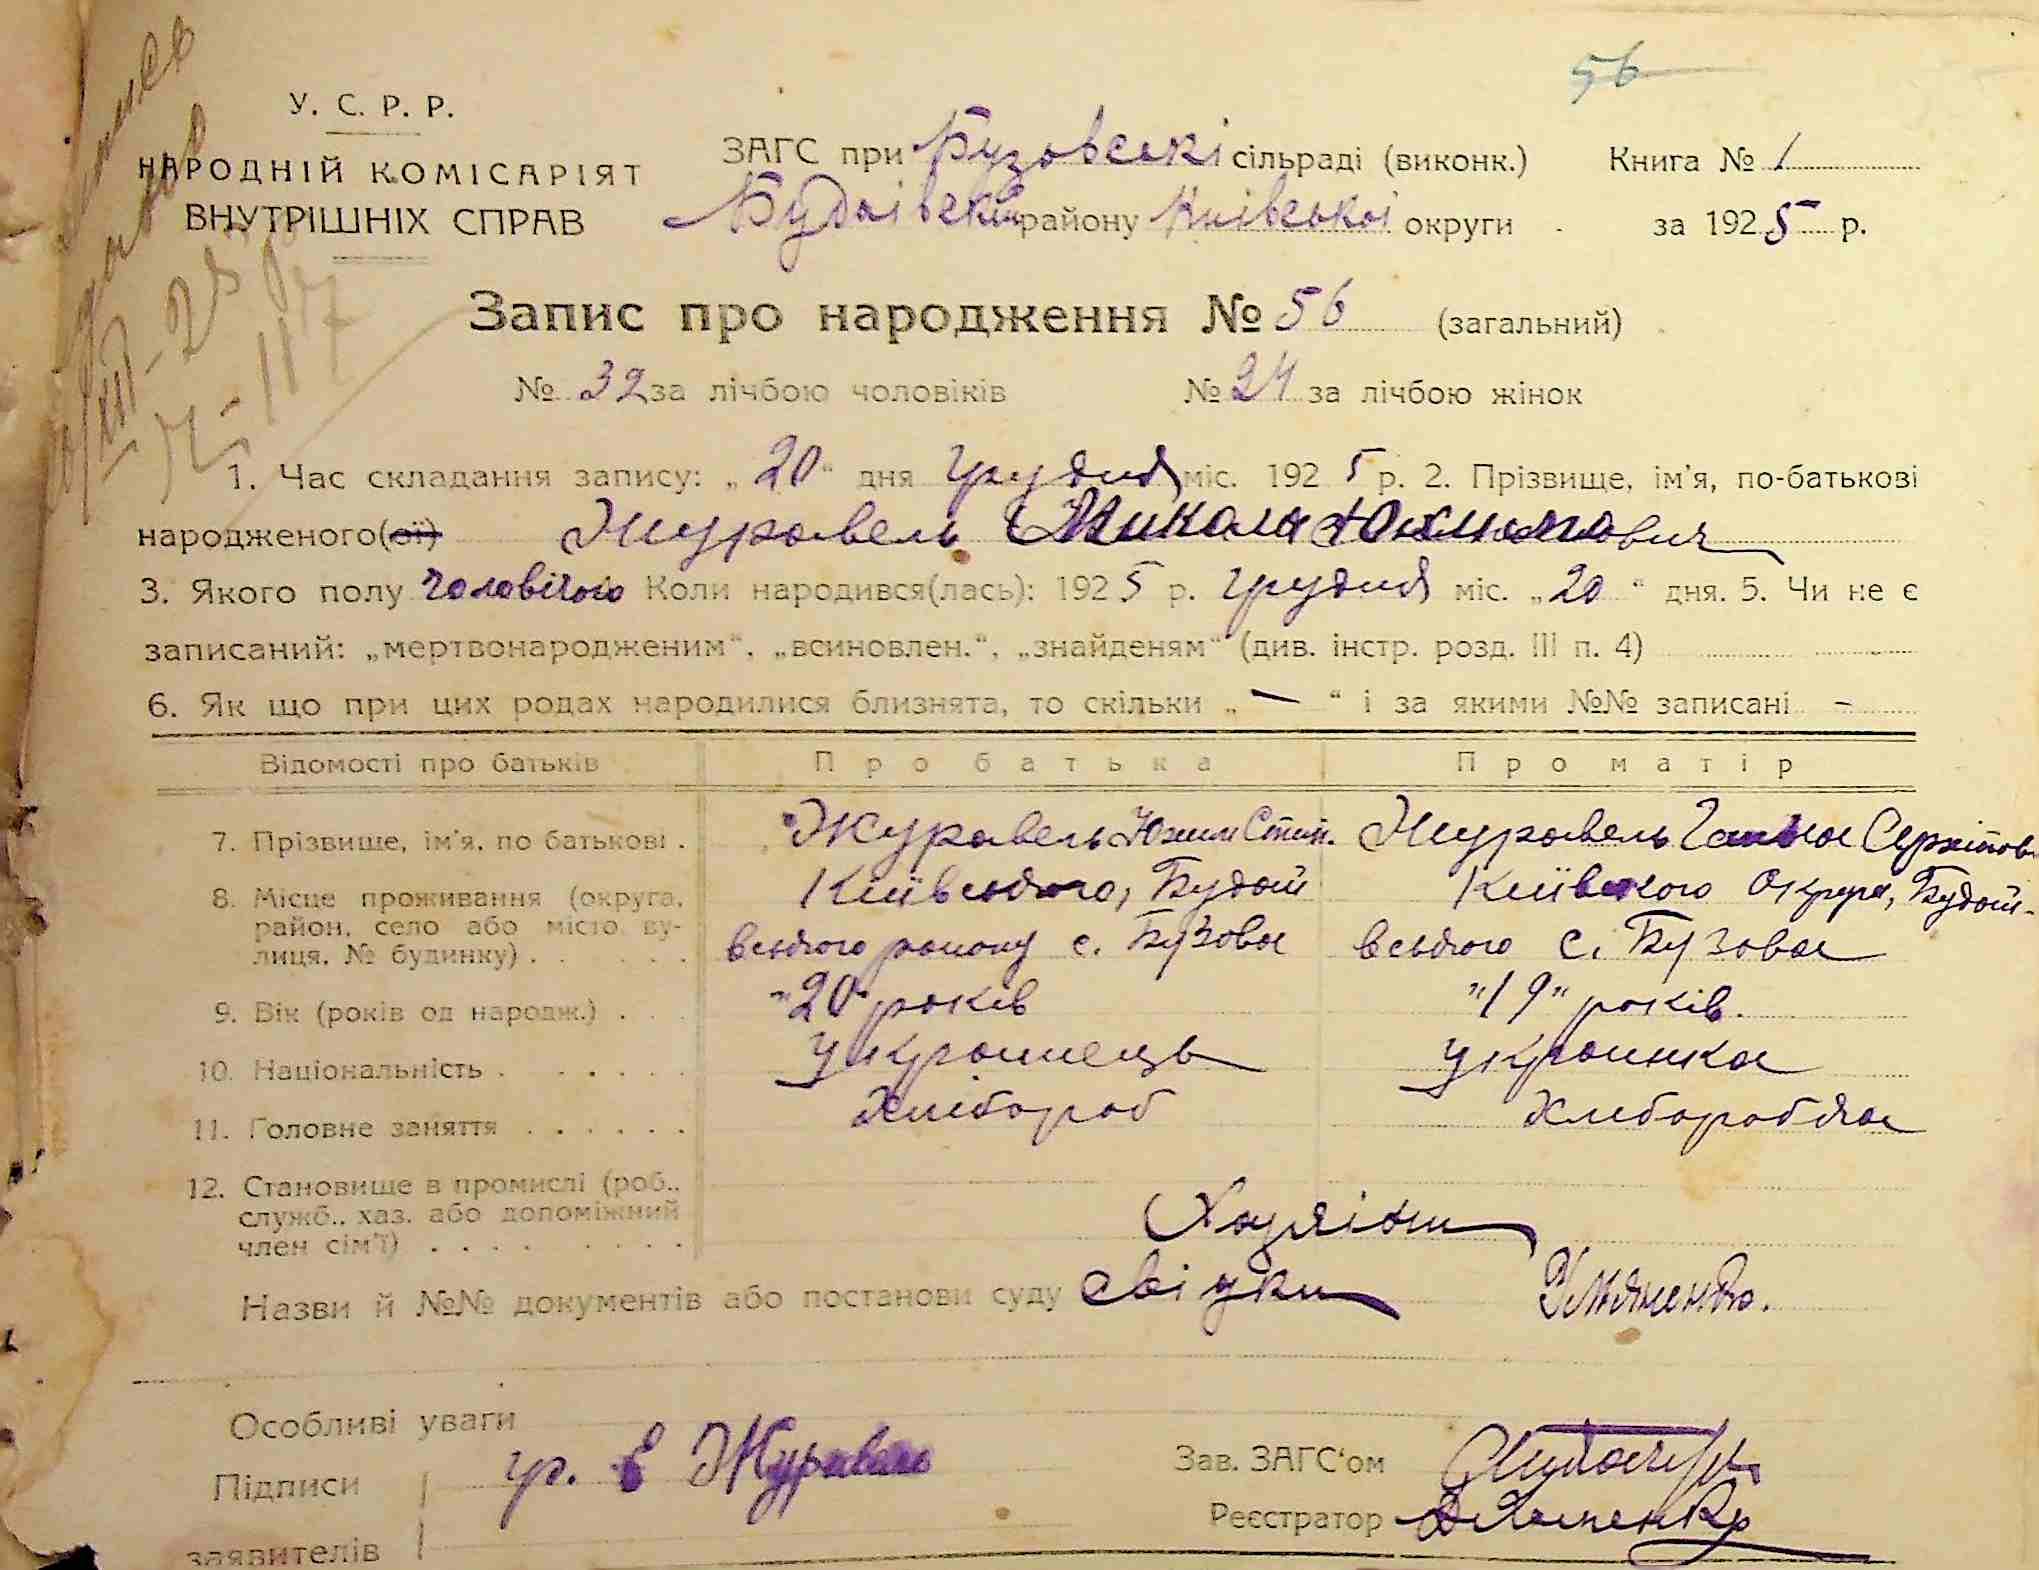 56
У. С. Р. Р.
НАРОДНІЙ КОМІСАРІЯТ
ВНУТРІШНІХ СПРАВ
ЗАГС при Бузовські сільраді (виконк.) Книга № 1
Будаївськ району Київської округи за 1925 р.
Запис про народження № 56 (загальний)
№ 32 за лічбою чоловіків № 24 за лічбою жінок
1. Час складання запису: „20“ дня грудня міс. 1925 р. 2. Прізвище, ім'я, по-батькові
народженого(ої) Журавель Микола
3. Якого полу чоловічого Коли народився(лась): 1925 р. грудня міс. „20“ дня. 5. Чи не є
записаний: „мертвонародженим“, „всиновлен.“, „знайденям“ (див. інстр. розд. III п. 4)
6. Як що при цих родах народилися близнята, то скільки „—“ і за якими №№ записані –
Відомості про батьків Про батька Про матір
7. Прізвище, ім'я, по батькові . Журавель Юхим Степ. Журавель Ганна
8. Місце проживання (округа, Київського, Будаїй Київського округа, Будаїй-
район, село або місто, ву- вського району с. Бузова вського с. Бузова
лиця, № будинку) . . . . . .
9. Вік (років од народж.) . . . "20" років "19" років.
10. Національність . . . . . . украинець украинка
11. Головне заняття . . . . . . Хлібороб Хлеборобка
12. Становище в промислі (роб.,
служб., хаз. або допоміжний Хазяіни
член сім'ї) . . . . . . . .
Назви й №№ документів або постанови суду свідки
Особливі уваги
Підписи гр. Є Журавель Зав. ЗАГС'ом
Реєстратор
заявителів